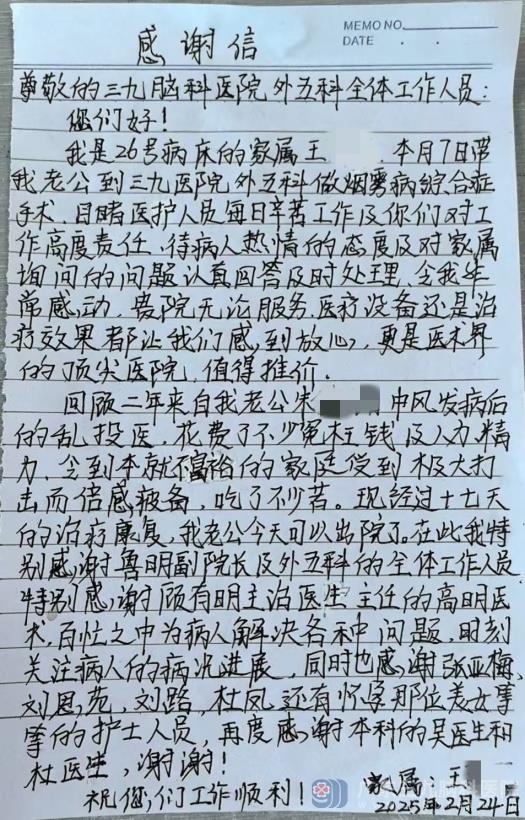 MEMO NO.
DATE . .
感谢信
尊敬的三九脑科医院外五科全体工作人员:
您们好!
我是26号病床的家属王 本月7日带
我老公到三九医院外五科做烟雾病综合症
手术.目睹医护人员每日辛苦工作及你们对工
作高度责任.待病人热情的态度及对家属
询问的问题认真回答及时处理.令我非
常感动.贵院无论服务.医疗设备还是治
疗效果都让我们感到放心,更是医术界
的顶尖医院.值得推价.
回顾二年来自我老公朱 中风发病后
的乱投医.花费了不少冤枉钱及人力精
力.令到本就不富裕的家庭受到极大打
击而倍感疲备,吃了不少苦。现经过十七天
的治疗康复,我老公今天可以出院了.在此我特
别感谢鲁明副院长及外五科的全体工作人员
特别感谢顾有明主治医生主任的高明医
术,百忙之中为病人解决各种问题.时刻
关注病人的病况进展.同时也感谢张亚梅,
刘恩苑,刘路,杜凤还有怀孕那位美女事
等的护士人员,再度感谢本科的吴医生和
杜医生,谢谢!
祝您们工作顺利! 家属王
2025年2月24日